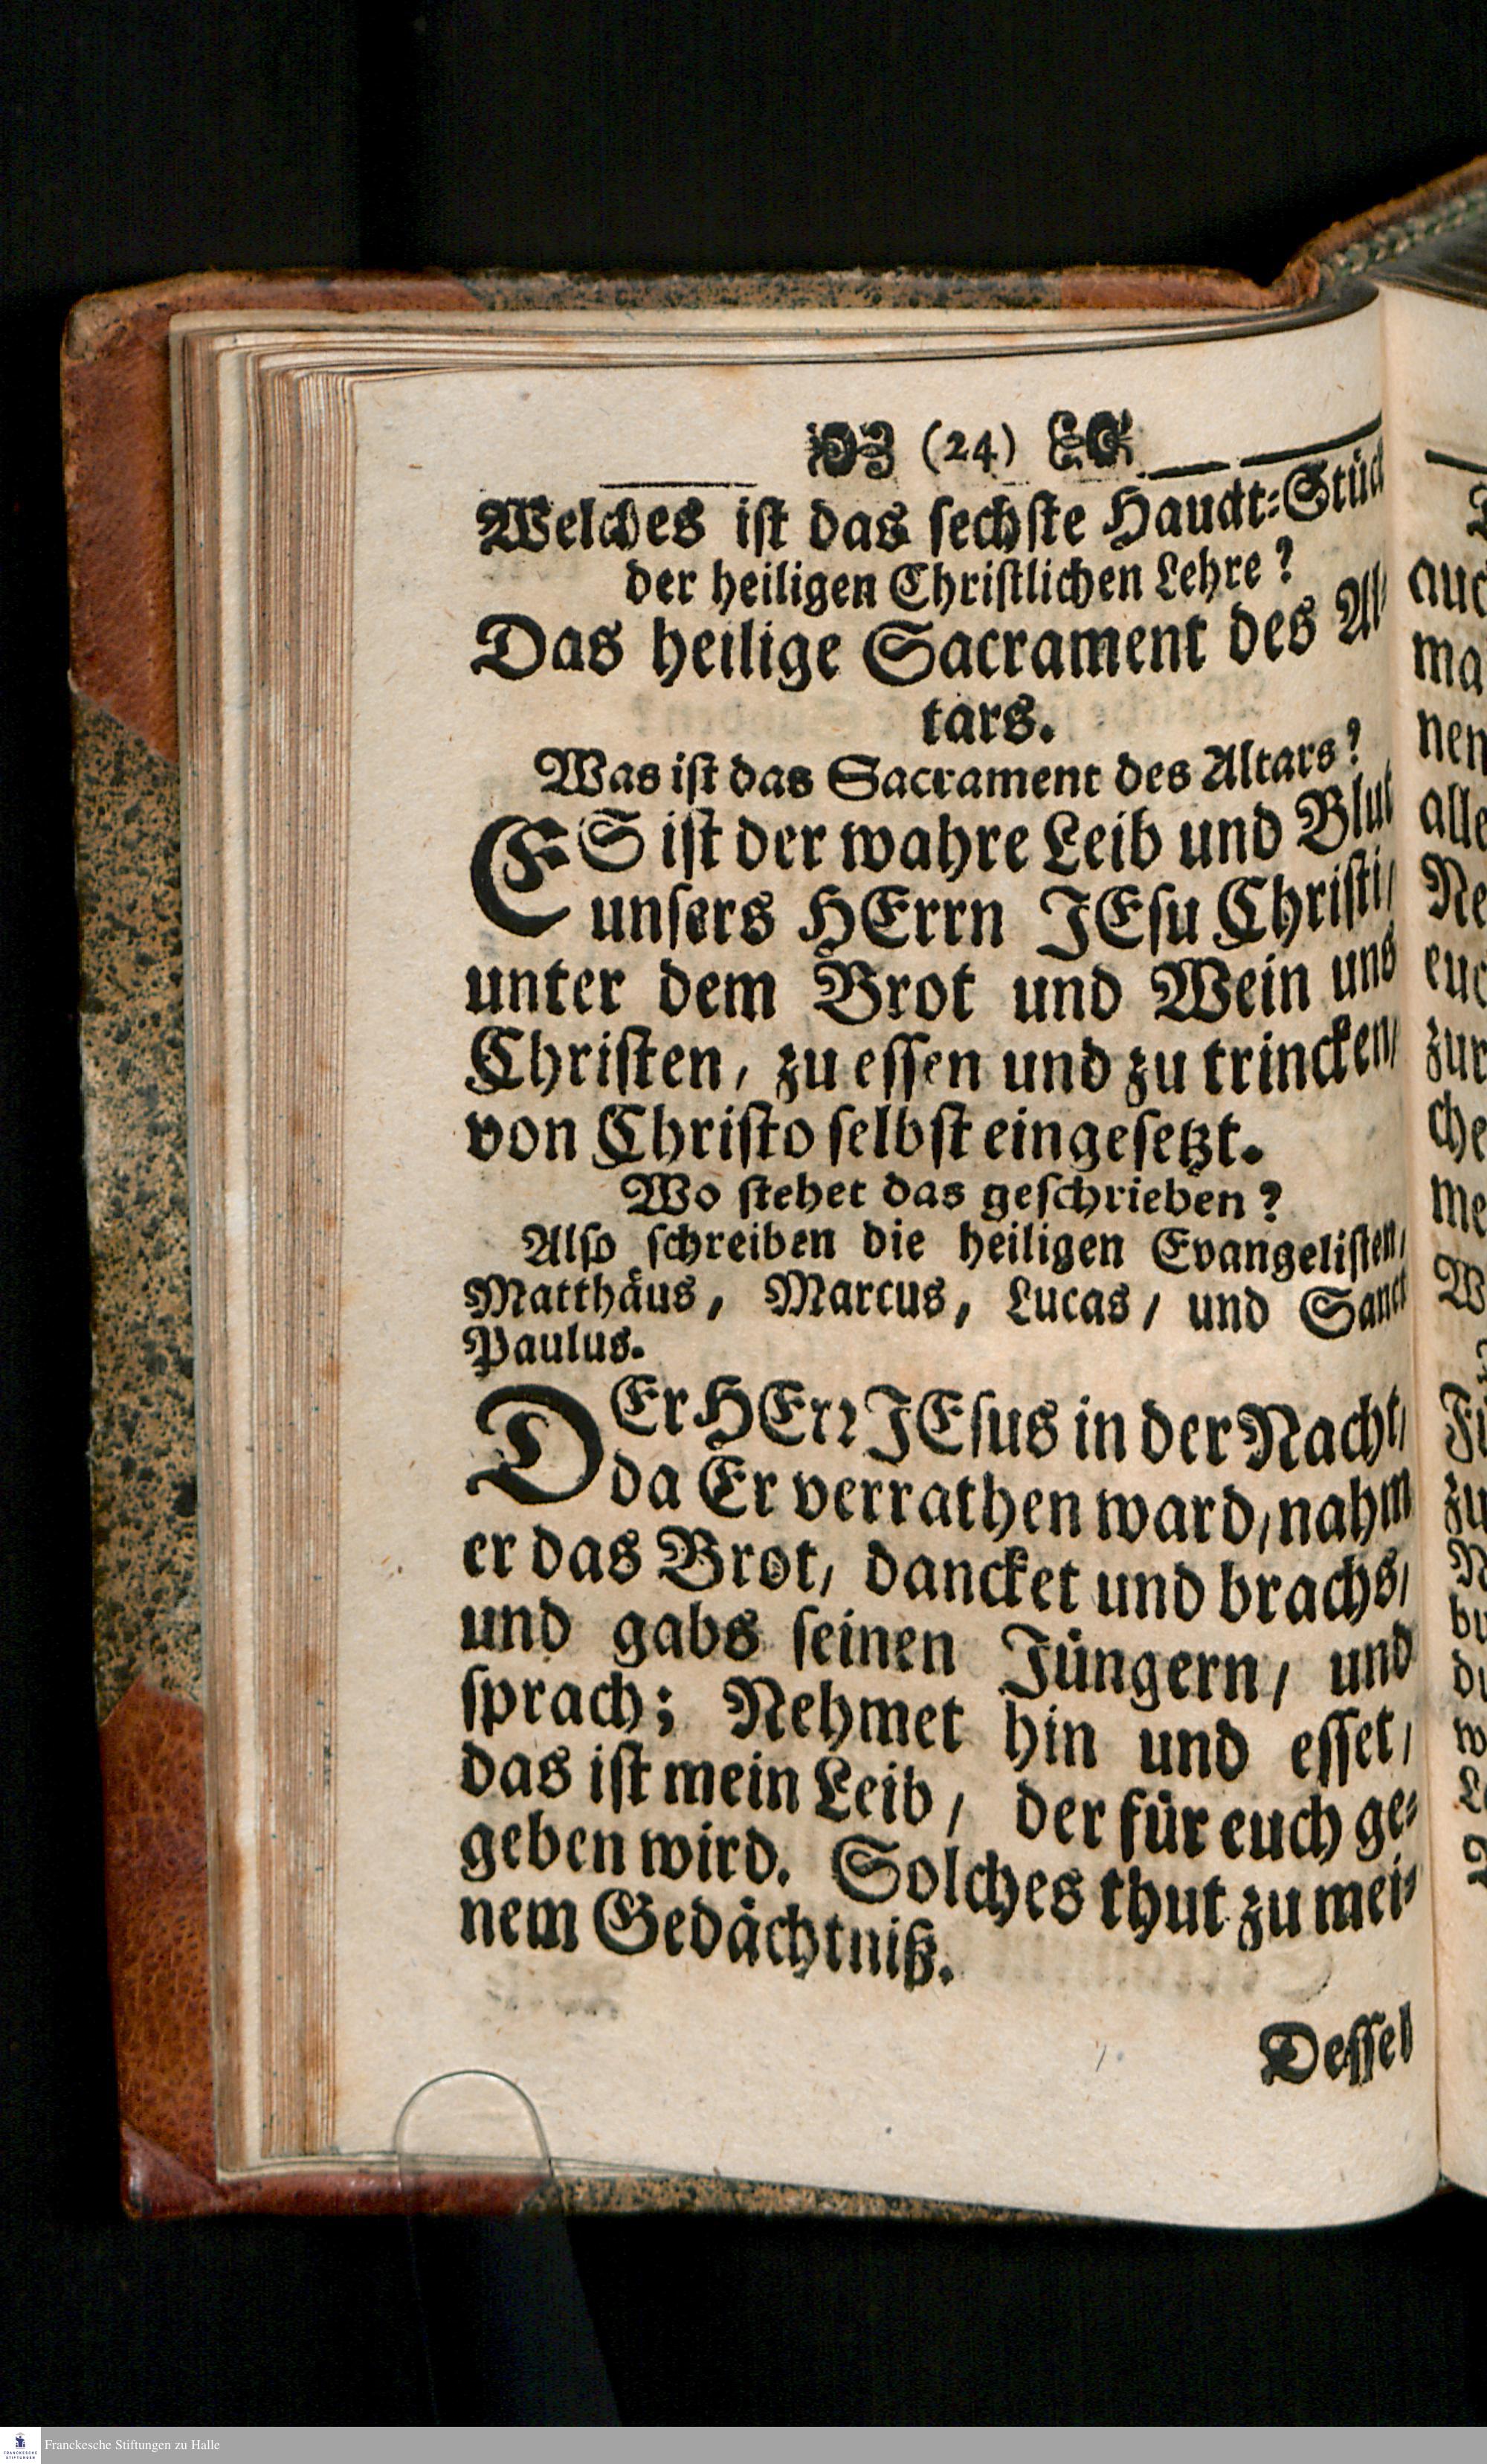 (24)
Welches ist das sechste Haudt-Stück
der heiligen Christlichen Lehre?
Das heilige Sacrament des Al-
tars.
Was ist das Sacrament des Altars?
ES ist der wahre Leib und Blut
unsers HErrn JEsu Christi/
unter dem Brot und Wein uns
Christen, zu essen und zu trincken/
von Christo selbst eingesetzt.
Wo stehet das geschrieben?
Also schreiben die heiligen Evangelisten/
Matthäus, Marcus, Lucas/ und Sanct
Paulus.
DEr HErr JEsus in der Nacht/
da Er verrathen ward/ nahm
er das Brot/ dancket und brachs/
und gabs seinen Jüngern/ und
sprach; Nehmet hin und esset/
das ist mein Leib/ der für euch ge-
geben wird. Solches thut zu mei-
nem Gedächtniß.
Dessel
auc
ma
nen
alle
Ne
euc
zur
che
me
W
zu
Franckesche Stiftungen zu Halle
FRANCKESCHE
STIFTUNGEN